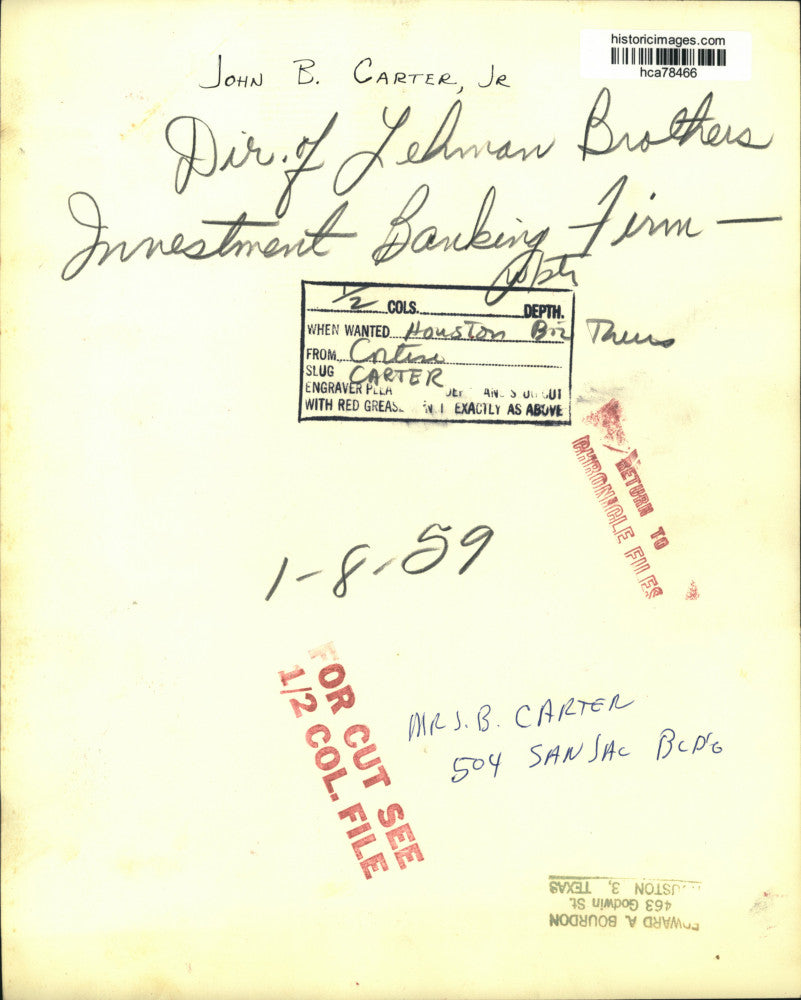 historicimages.com
hca78466
JOHN B. CARTER, JR
Dir. of Lehman Brothers
Investment Banking Firm —
1/2 COLS. DEPTH.
WHEN WANTED Houston Biz Thurs
FROM
SLUG CARTER
ENGRAVER
WITH RED EXACTLY AS ABOVE
RETURN TO
CHRONICLE FILES
1-8-59
FOR CUT SEE
1/2 COL. FILE
MR J. B. CARTER
504 SAN JAC BLDG
EDWARD A. BOURDON
463 Godwin St.
HOUSTON 3, TEXAS